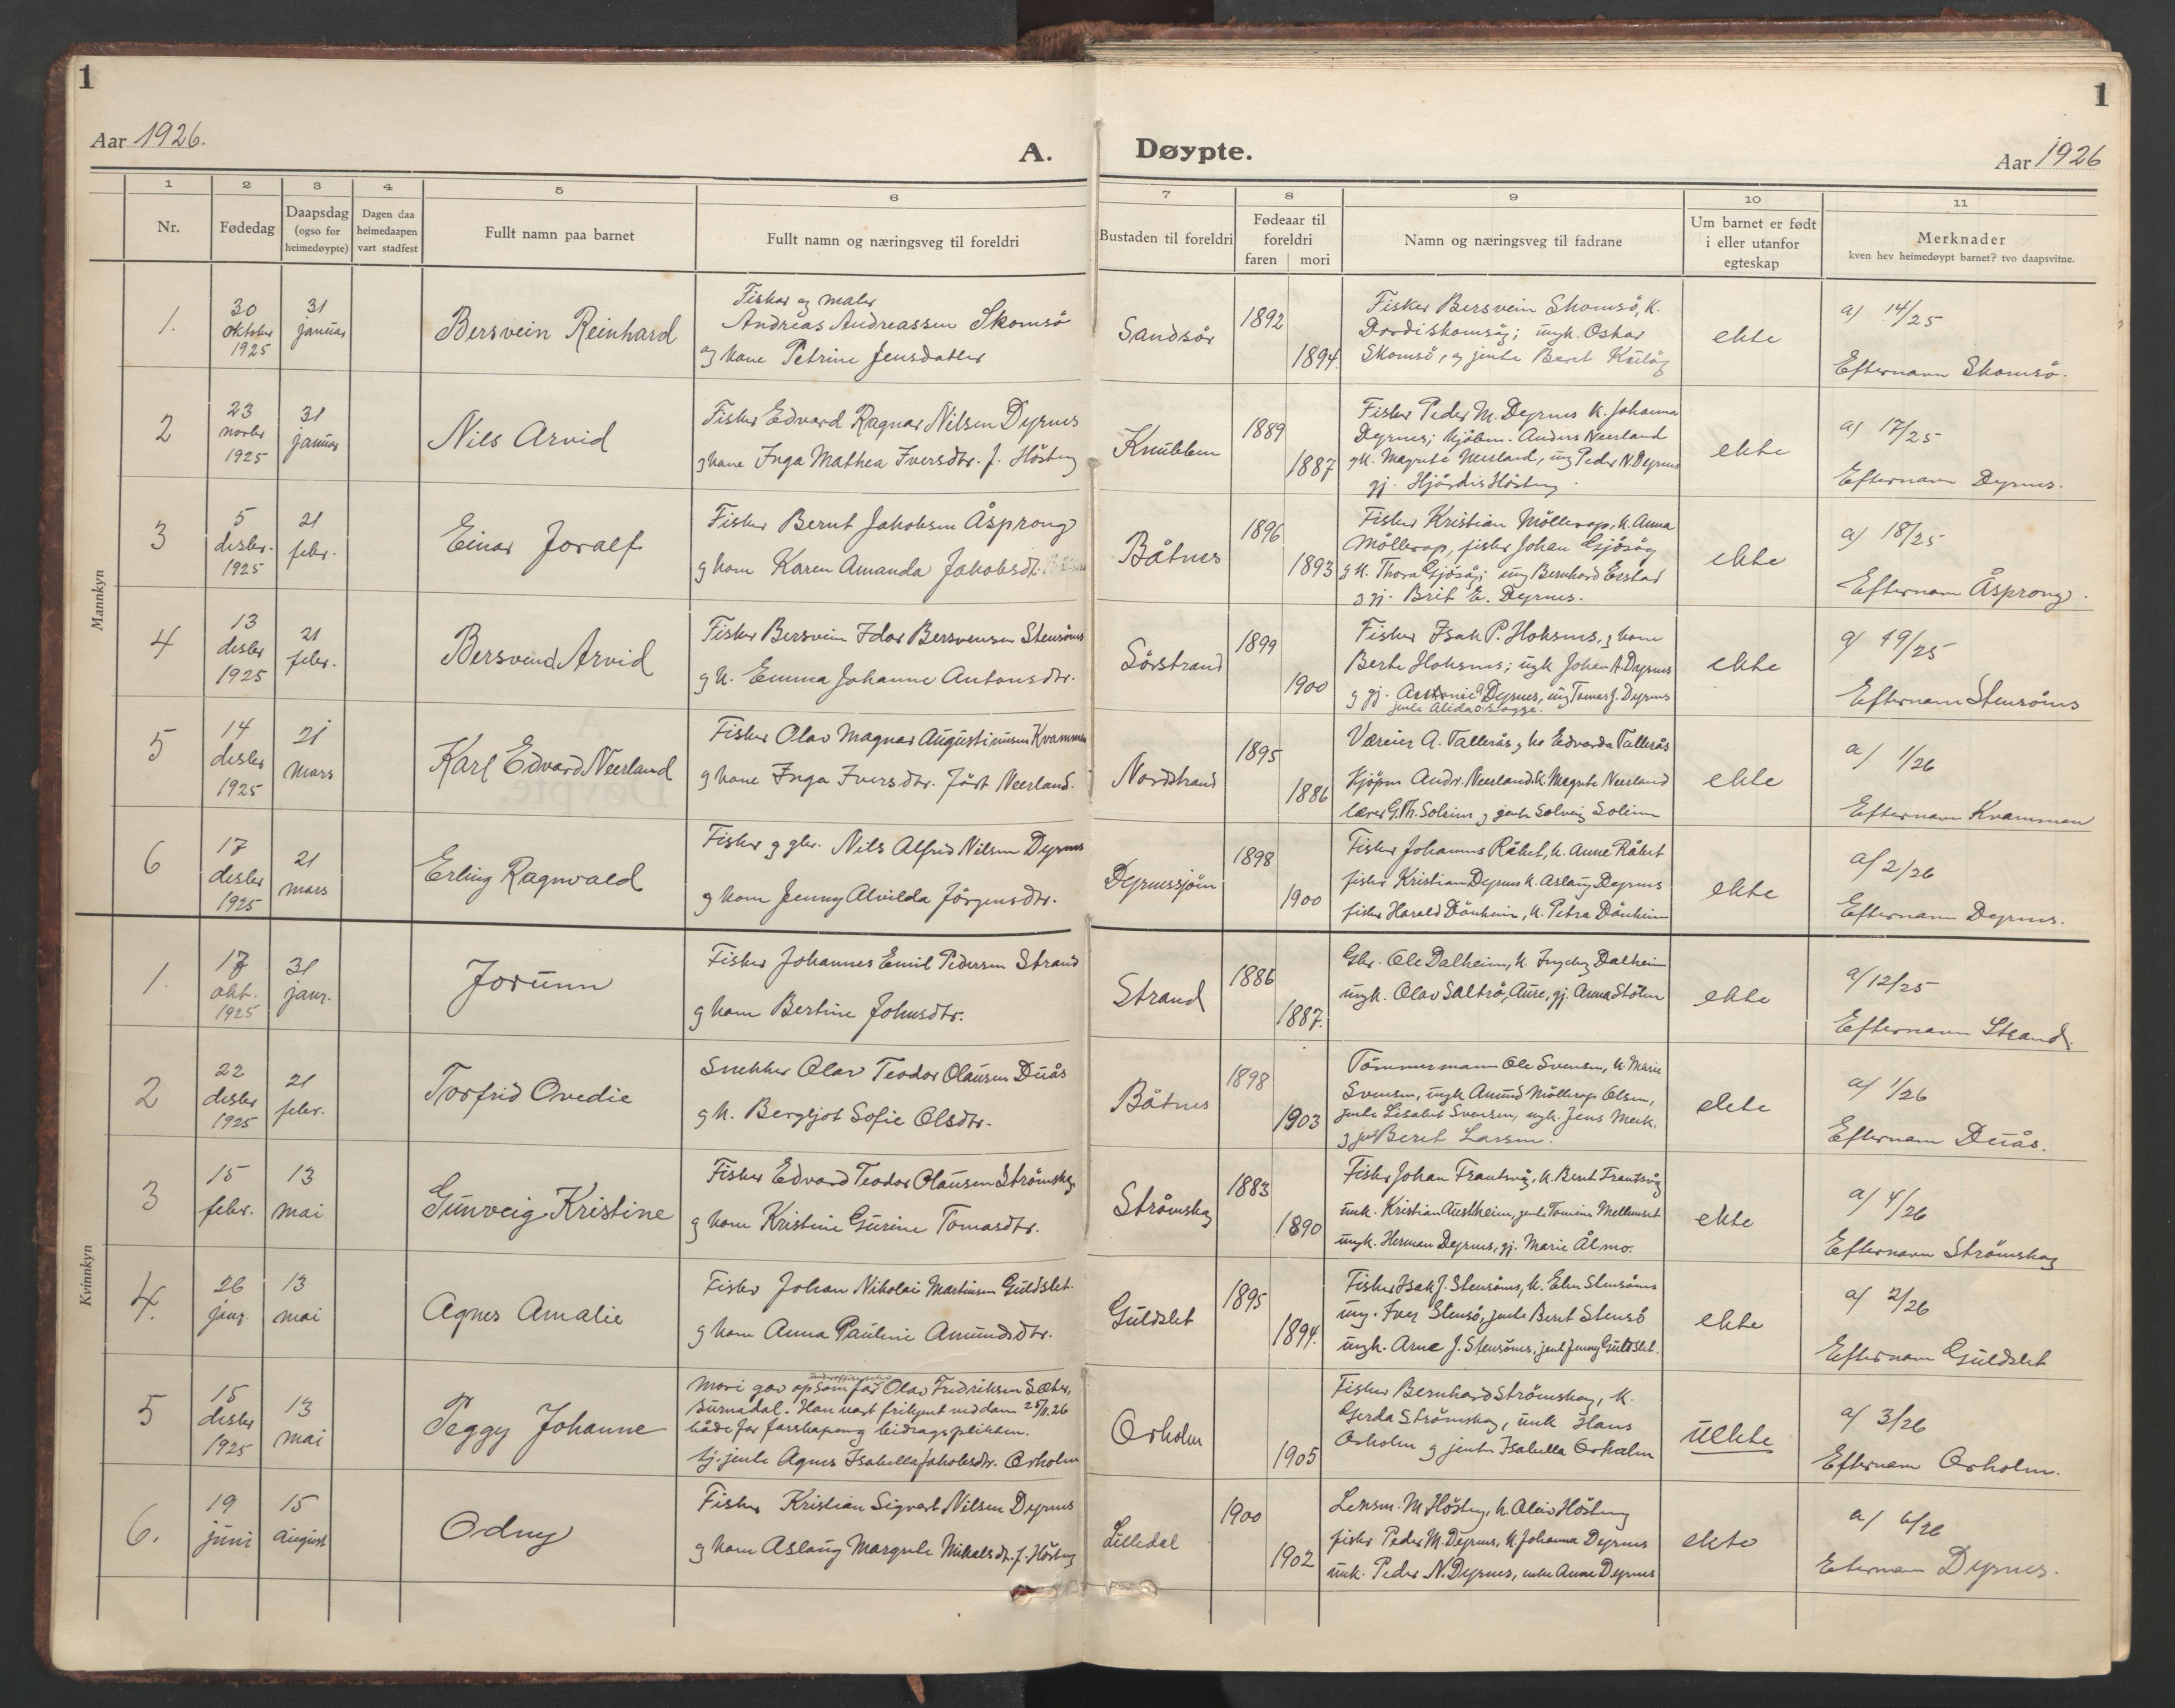 1
1
Aar 1926.
A. Døypte.
Aar 1926
1 2 3 4 5 6 7 8 9 10 11
Nr.
Fødedag
Daapsdag
(ogso for
heimedøypte)
Dagen daa
heimedaapen
vart stadfest
Fullt namn paa barnet
Fullt namn og næringsveg til foreldri
Bustaden til foreldri
Fødeaar til
foreldri
faren mori
Namn og næringsveg til fadrane
Um barnet er født
i eller utanfor
egteskap
Merknader
kven hev heimedøypt barnet? tvo daapsvitne.
Mannkyn
1.
30
oktober
1925
31
januar
Bersvein Reinhard
Fisker og maler
Andreas Andreassen Skomsö
og kone Petrine Jensdatter
Sandsör
1892
1894.
Fisker Bersvein Skomsö, k.
Dordi Skomsö; ungk. Oskar
Skomsö, og jente Beret
ekte
a) 14/25
Efternavn Skomsö.
2
23
novbr
1925
31
januar
Nils Arvid
Fisker Edvard Ragnar Nilsen Dyrnes
g kone Inga Mathea Iversdtr. f. Hösteng
Knubben
1889
1887
Fisker Peder M. Dyrnes k. Johanna
Dyrnes; kjöbm. Anders Neerland
g k. Magrete Neerland, ung Peder N. Dyrnes
gj. Hjördis Hösteng.
ekte
a) 17/25
Efternavn Dyrnes.
3
5
desbr.
1925
21
febr.
Einar Joralf
Fisker Bernt Jakobsen Åsprong
g kone Karen Amanda Jakobsdt.
Båtnes
1896
1893
Fisker Kristian Möllerop, k. Anna
Möllerop, fisker Johan Gjösög
g k. Thora Gjösög; ung Bernhard
g gj. Brit E. Dyrnes.
ekte
a) 18/25
Efternavn Åsprong.
4
13
desbr
1925
21
febr.
Bersvend Arvid
Fisker Bersvein Idar Bersvensen Stensönes
g k. Emma Johanne Antonsdtr.
Sörstrand
1899
1900
Fisker Isak P. Hoksnes, g kone
Berte Hoksnes; ugk Johan A Dyrnes
g gj. Dyrnes, ung Tomas J. Dyrnes
jente Alida
ekte
a) 19/25
Efternavn Stensönes
5
14
desbr
1925
21
mars
Karl Edvard Neerland
Fisker Olav Magnar Augustinusen Kvammen
g kone Inga Iversdtr. födt Neerland.
Nordstrand
1895
1886
Væreier A. Tallerås, g ko Edvarda Tallerås
Kjöpm Andr. Neerland k. Magrete Neerland
lærer G. Th. Soleim g jente Solveig Soleim
ekte
a) 1/26
Efternavn Kvammen
6
17
desbr
1925
21
mars
Erling Ragnvald
Fisker g gbr. Nils Alfred Nilsen Dyrnes
g kone Jenny Alvilda Jörgensdtr.
Dyrnessjöen
1898
1900
Fisker Johannes Råket, k. Anne Råket
fisker Kristian Dyrnes k. Aslaug Dyrnes
fisker Harald Dönheim, k. Petra Dönheim
ekte
a) 2/26
Efternavn Dyrnes.
Kvinnkyn
1.
17
okt.
1925
31
janr.
Jorunn
Fisker Johannes Emil Pedersen Strand
g kone Bertine Johnsdtr.
Strand
1886
1887.
Gbr. Ole Dalheim, k. Ingeborg Dalheim
ungk. Olav Saltrö, Aure, gj. Anna Stölen
ekte
a) 12/25
Efternavn Strand.
2
22
desbr
1925
21
febr.
Torfrid Ovedie
Snekker Olav Teodor Olausen Duås
g k. Bergljot Sofie Olsdtr.
Båtnes
1898
1903
Tömmermann Ole Svensen, k Marie
Svensen, ungk Amund Möllerop Olsen,
jente Lisabet Svensen, ugk. Jens Meek.
g jent Beret Larsen.
ekte
a) 1/26
Efternavn Duås.
3
15
febr.
13
mai
Gunveig Kristine
Fisker Edvard Teodor Olausen Strömskag
g kone Kristine Gurine Tomasdtr.
Strömskag
1883
1890
Fisker Johan Frantsvåg, k. Beret Frantsvåg
unk. Kristian Austheim, jente Tomine Mellemset
ungk. Herman Dyrnes, gj. Marie Ålmo.
ekte
a) 4/26
Efternavn Strömskag
4.
26
janr.
13
mai
Agnes Amalie
Fisker Johan Nikolai Martinsen Guldslet.
g kone Anna Pauline Amundsdtr.
Guldslet
1895
1894.
Fisker Isak J. Stensönes, k. Elen Stensönes
ung. Iver Stensö, jente Beret Stensö
ungk. Arne J. Stensönes, jent Jenny Guldslet.
ekte
a) 2/26
Efternavn Guldslet
5
15
desbr
1925
13
mai
Peggy Johanne
Mori gav op som far Olav Fredriksen Sæter,
Surnadal. Han vart frikjent ved dom 25/11.26
både for farskap og bidragsplikten.
tj. jente Agnes Isabella Jakobsdtr. Orholm
Orholm
1905
Fisker Bernhard Strömskag, k.
Gerda Strömskag, unk Hans
Orholm g jente Isabella Orholm
uekte
a) 3/26
Efternavn Orholm.
6.
19
juni
15
august
Odny
Fisker Kristian Sigvart Nilsen Dyrnes
g kone Aslaug Margrete Mikalsdt. f. Hösteng
Lilledal
1900
1902
Lensm. M Hösteng, k. Hösteng
fisker Peder M. Dyrnes, k Johanna Dyrnes
unk. Peder N. Dyrnes, enke Anne Dyrnes
ekte
a) 6/26
Eternavn Dyrnes.